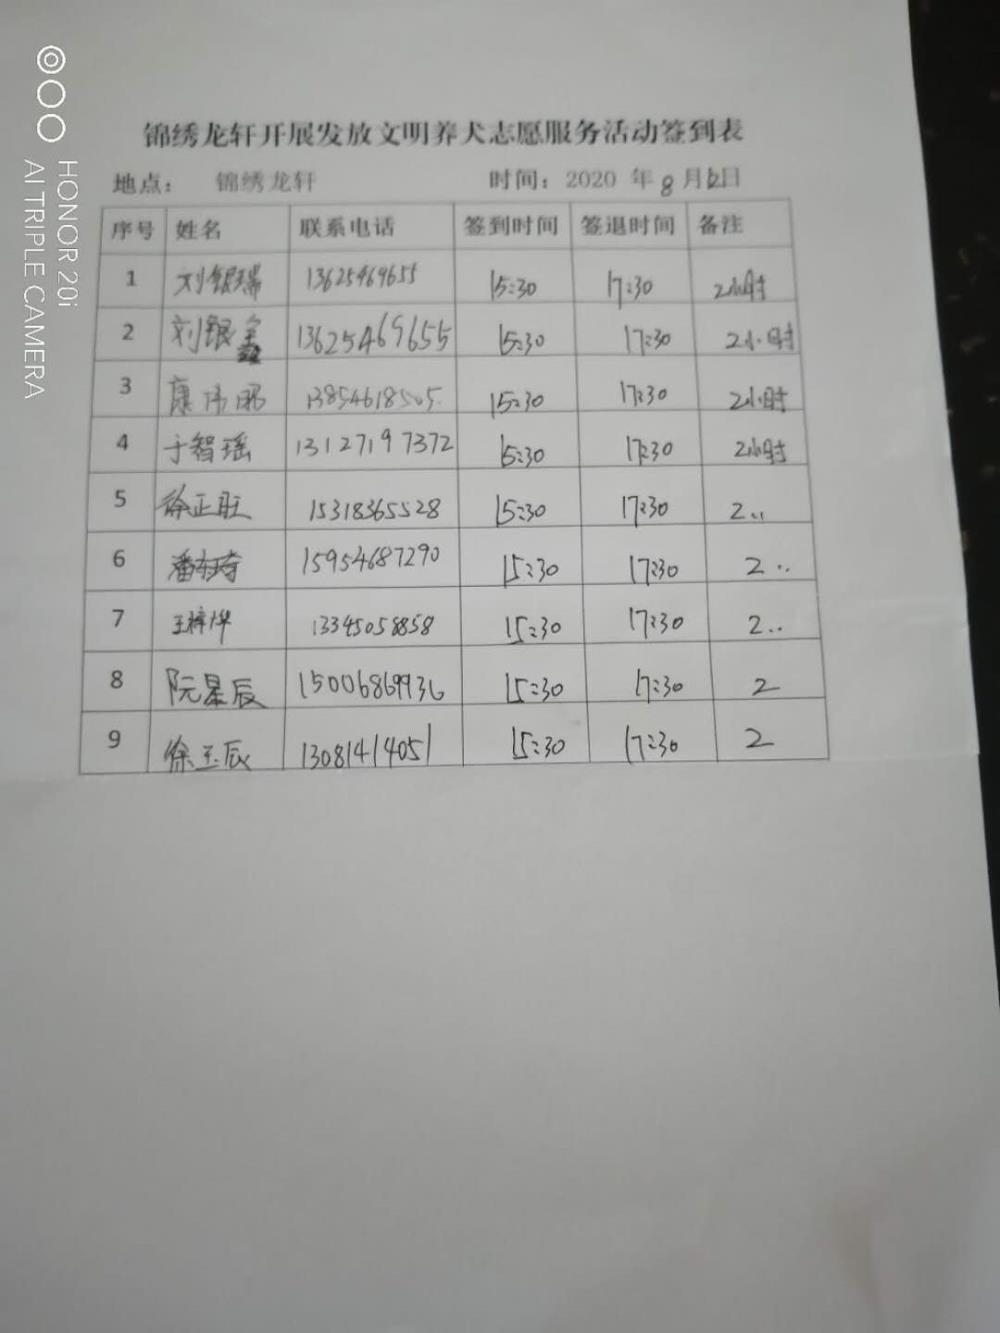 HONOR 20i
AI TRIPLE CAMERA
锦绣龙轩开展发放文明养犬志愿服务活动签到表
地点： 锦绣龙轩 时间：2020 年 8 月 日
序号 姓名 联系电话 签到时间 签退时间 备注
1 刘银瑞 13625469655 15:30 17:30 2小时
2 刘银鑫 13625469655 15:30 17:30 2小时
3 康 鹏 13854618505 15:30 17:30 2小时
4 于智瑶 13127197372 15:30 17:30 2小时
5 徐正旺 15318365528 15:30 17:30 2..
6 潘 15954687290 15:30 17:30 2..
7 王梓烨 13345058858 15:30 17:30 2..
8 阮星辰 15006869936 15:30 17:30 2
9 徐玉辰 13081414051 15:30 17:30 2